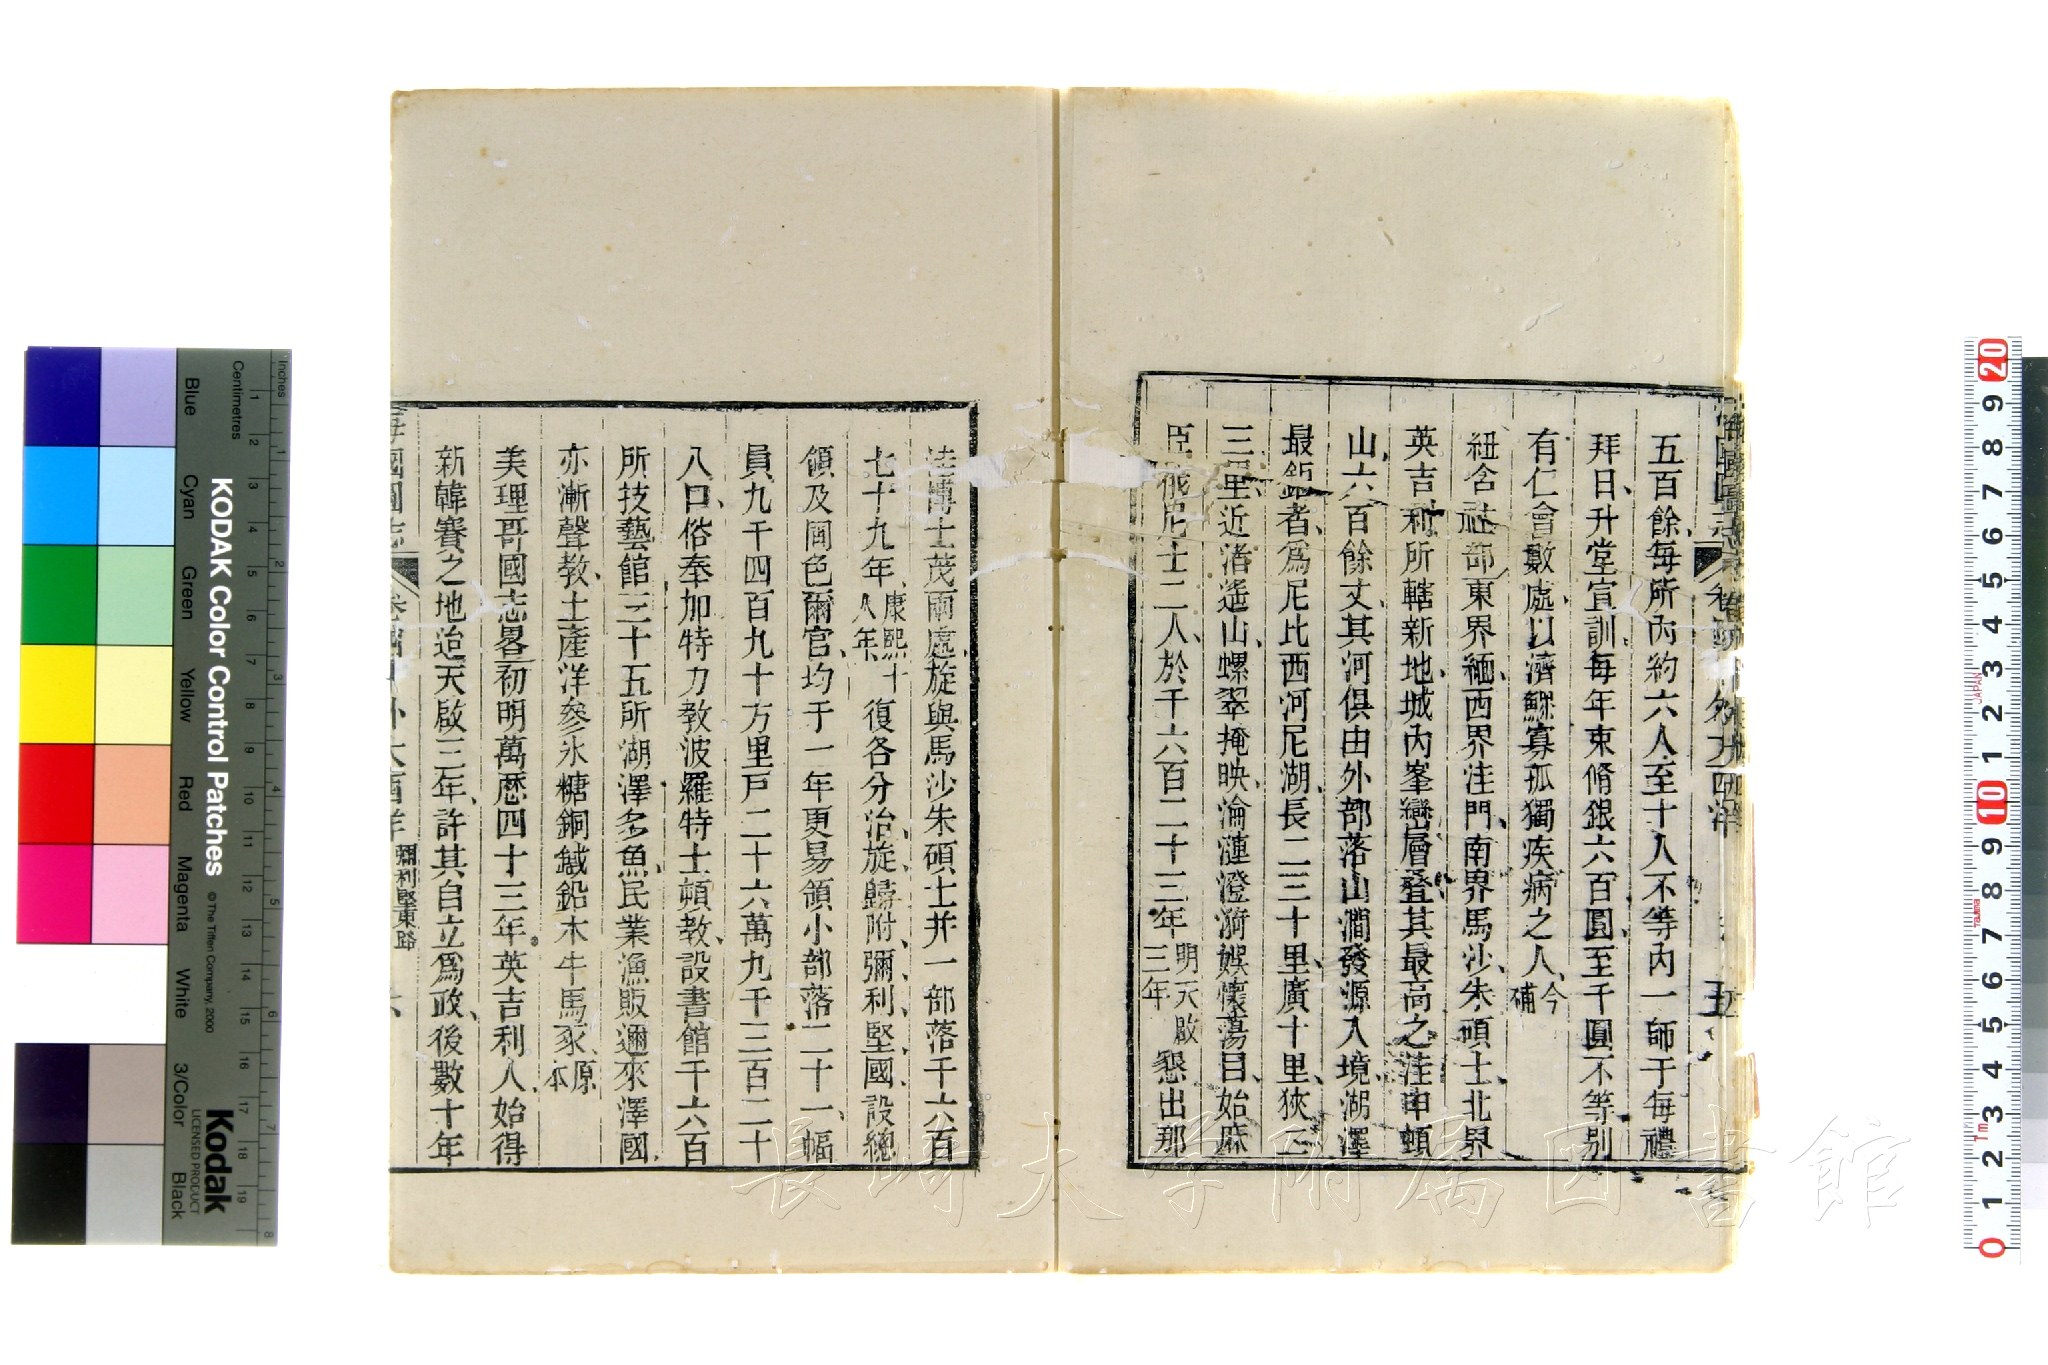 五百餘每所內約六人至十人不等內一師于每禮
拜日升堂宣訓每年束脩銀六百圓至千圓不等別
有仁會數處以濟鰥寡孤獨疾病之人今補
紐含社部東界緬西界洼門南界馬沙朱碩士北界
英吉利所轄新地城內峯巒層叠其最高之洼申頓
山六百餘丈其河俱由外部落山澗發源入境湖澤
最鉅者為尼比西河尼湖長二三十里廣十里狹三
三里近渚遙山螺翠掩映淪漣澄漪娛懷蕩目始麻
臣俄尼士二人於千六百二十三年明天啟三年懇出那
洼博士茂爾處旋與馬沙朱碩士并一部落千六百
七十九年康熙十八年復各分治旋歸附彌利堅國設總
領及岡色爾官均于一年更易領小部落二十一幅
員九千四百九十方里戶二十六萬九千三百二十
八口俗奉加特力教波羅特士頓教設書館千六百
所技藝館三十五所湖澤多魚民業漁販邇來澤國
亦漸聲教土產洋參氷糖銅鐵鉛木牛馬豕原本
美理哥國志畧初明萬歷四十三年英吉利人始得
新韓賽之地迨天啟三年許其自立為政後數十年
海國圖志
彌利堅東路
KODAK Color Control Patches
© The Tiffen Company, 2000
Kodak
LICENSED PRODUCT
Inches
Centimetres
Blue
Cyan
Green
Yellow
Red
Magenta
White
3/Color
Black
1 2 3 4 5 6 7 8 9 10 11 12 13 14 15 16 17 18 19
1 2 3 4 5 6 7 8
20 9 8 7 6 5 4 3 2 1 10 9 8 7 6 5 4 3 2 1 0
JAPAN
長崎大学附属図書館